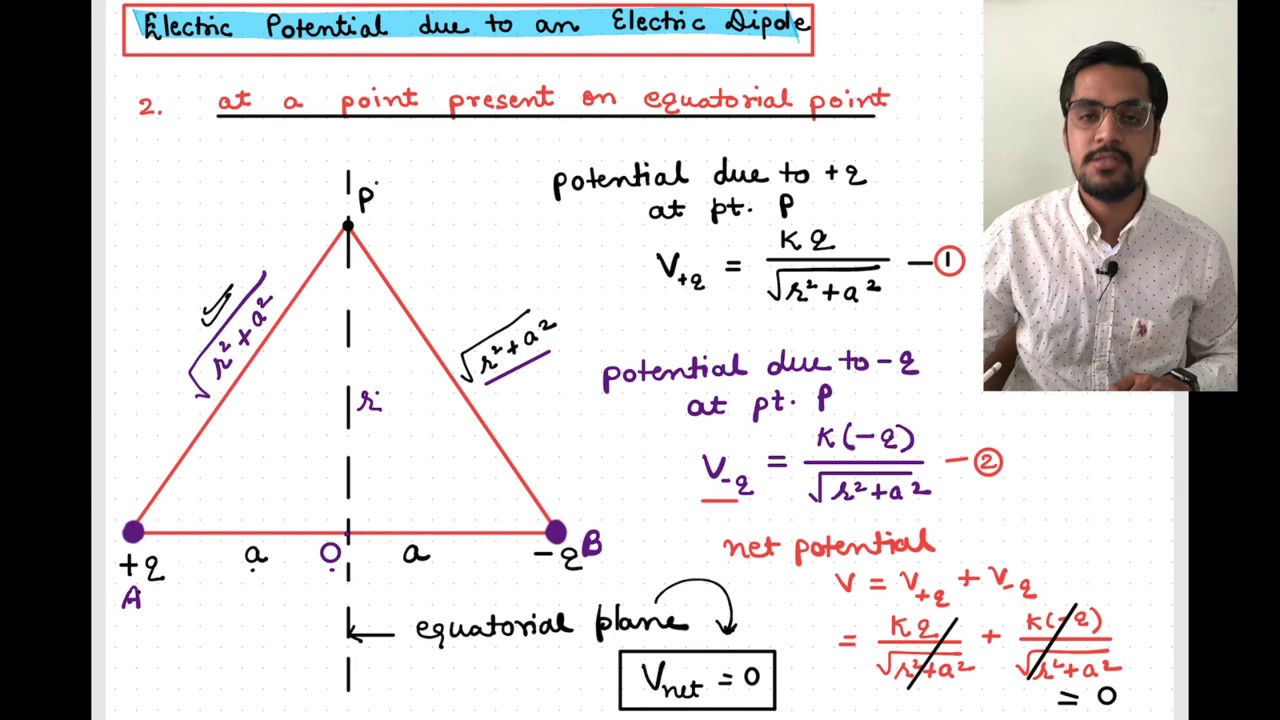 Electric Potential due to an Electric Dipole
2. at a point present on equatorial point
P
√r²+a²
√r²+a²
r
+q
A
a
O
a
-q B
equatorial plane
V_net = 0
potential due to +q
at pt. P
V_+q = Kq / √r²+a² - ①
potential due to -q
at pt. P
V_-q = K(-q) / √r²+a² - ②
net potential
V = V_+q + V_-q
= Kq / √r²+a² + K(-q) / √r²+a²
= 0